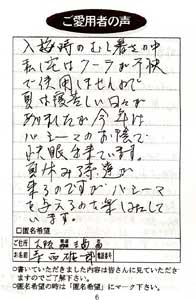 ご愛用者の声
入梅時のむし暑さの中
私達はクーラが不快
で使用しませんので
夏は寝苦しい日々が
続れたが今年は
ハシーマのお陰で
快眠出来ています。
夏休み孫達が
来るのですがハシーマ
を与えるのを楽しみにして
います。
□匿名希望
ご住所 大阪
お名前
○書いていただきました内容は皆さんに見ていただき
ますのでご了解下さい。
○匿名希望の時は「匿名希望」にマーク下さい。
6